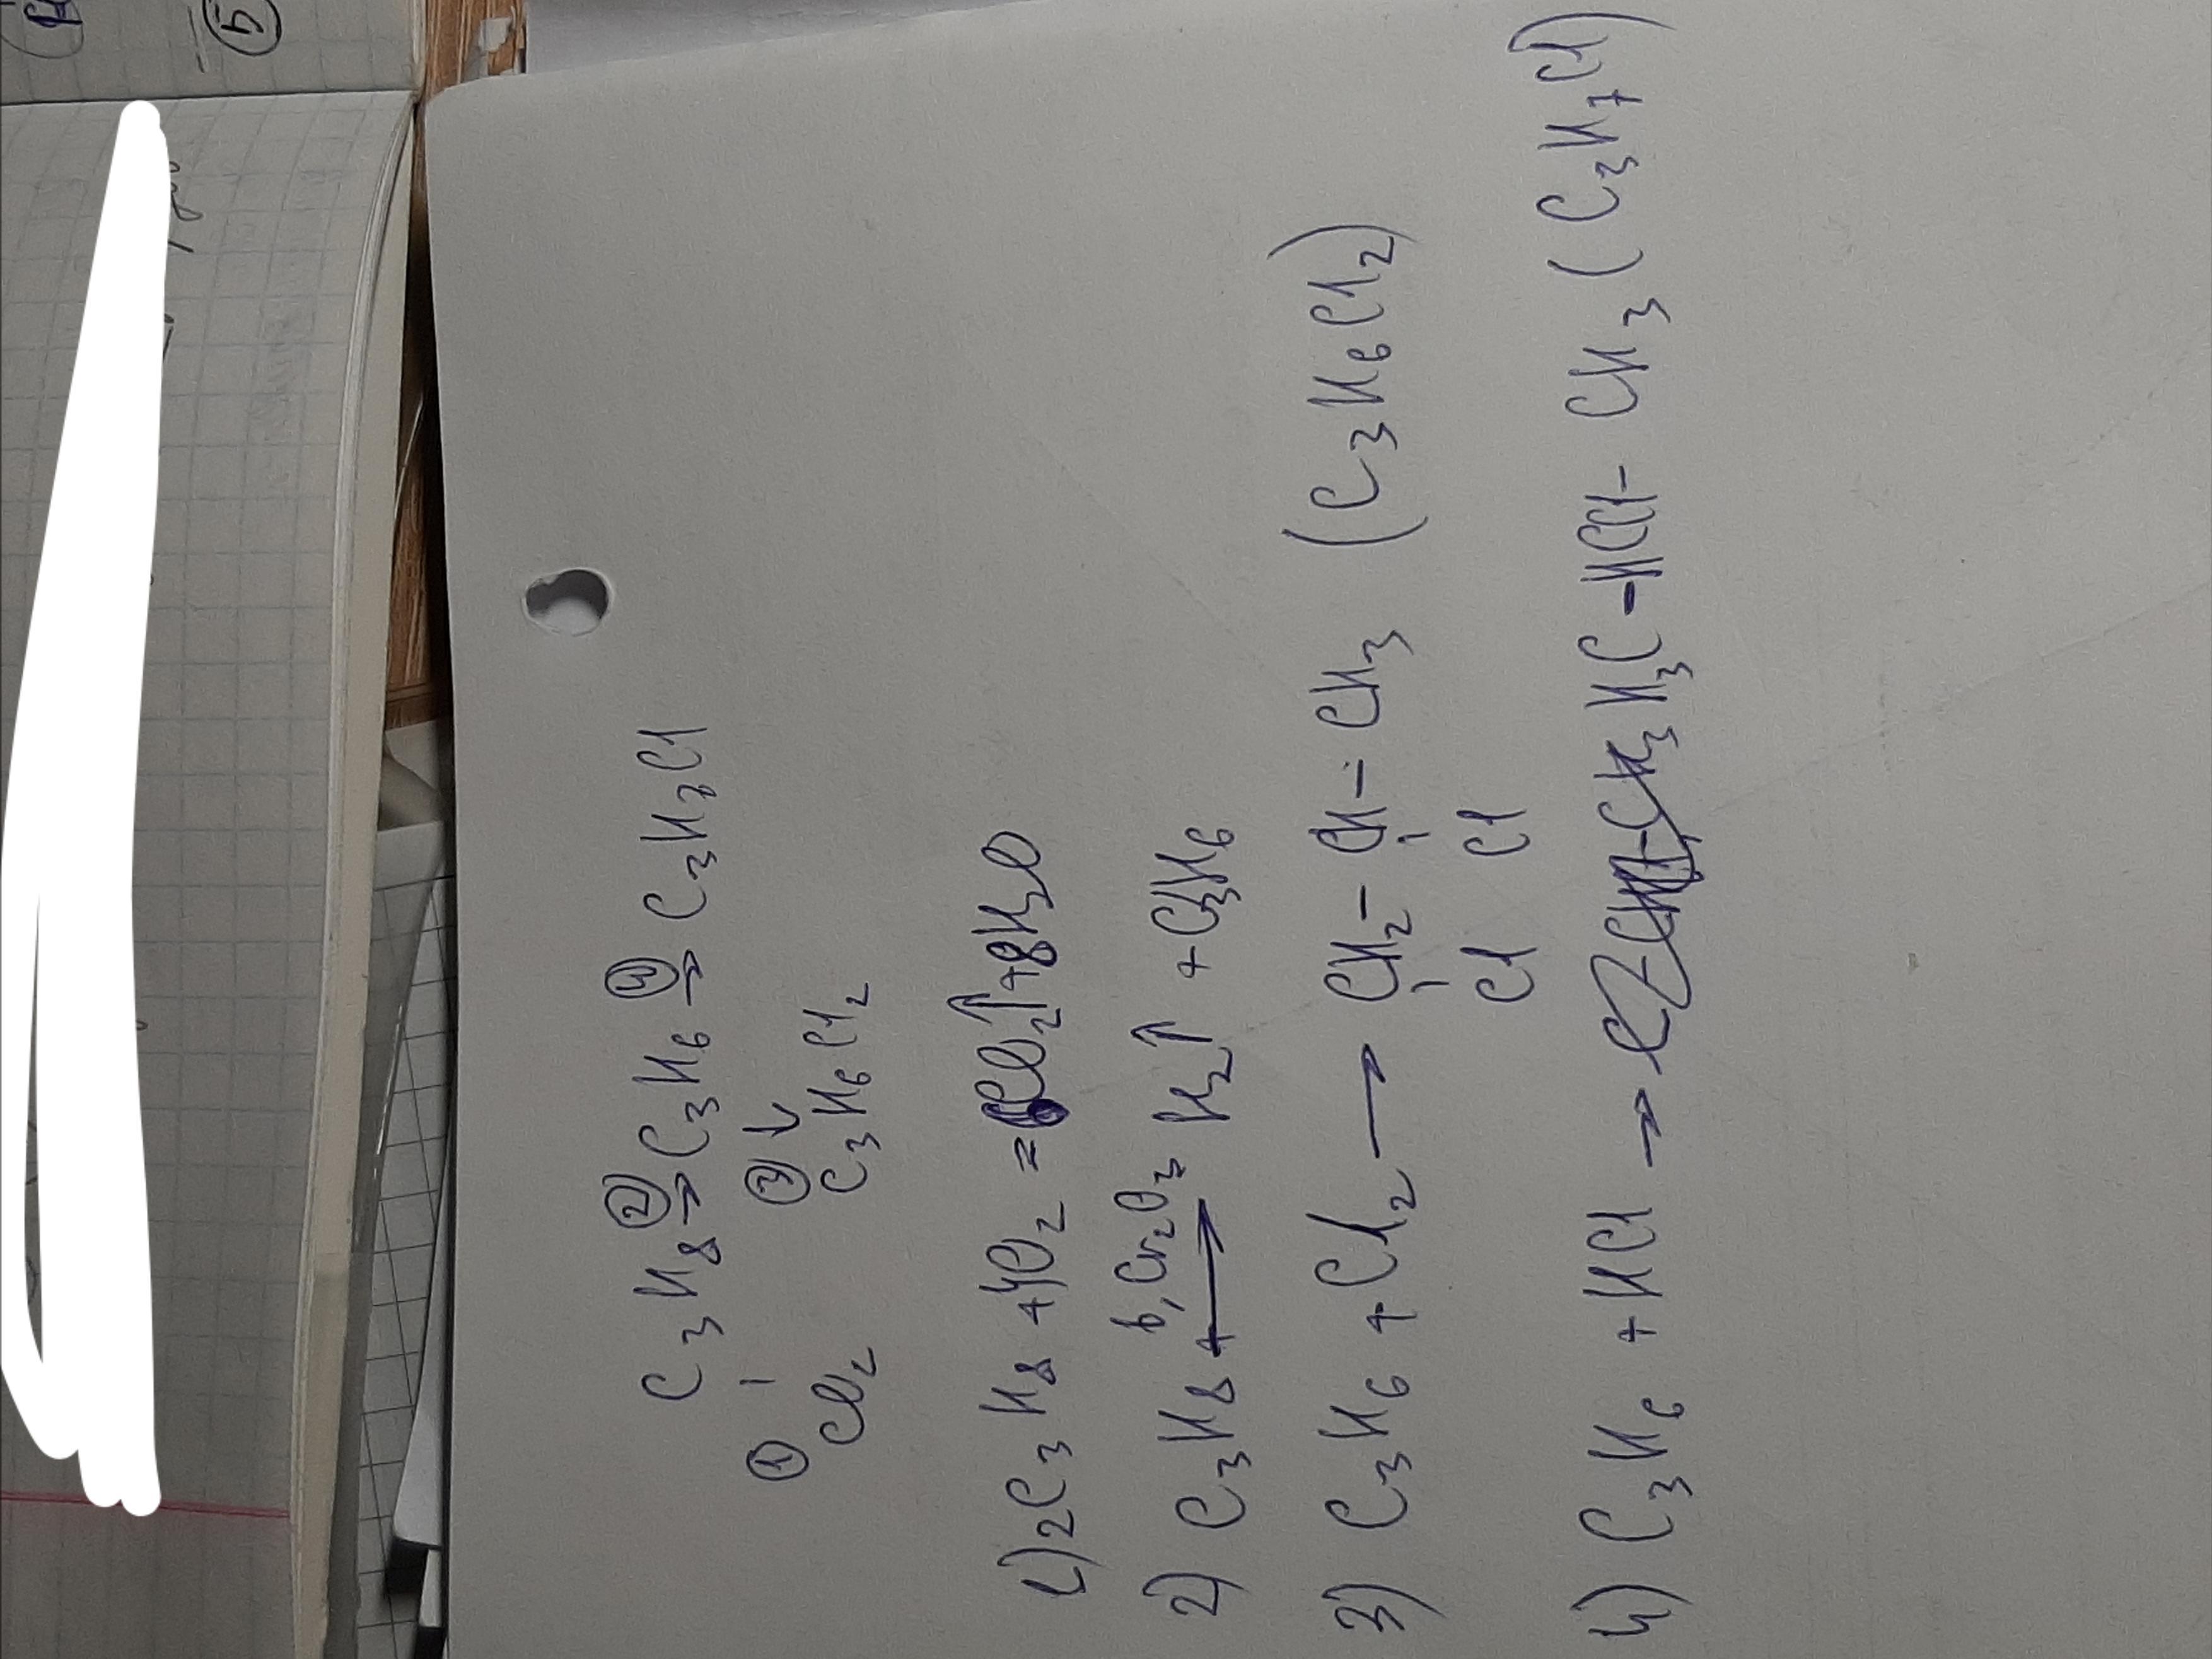 C₃H₈ ② → C₃H₆ ④ → C₃H₇Cl
① ↓ ③ ↓
CO₂ C₃H₆Cl₂
1) 2C₃H₈ + 4O₂ = 6CO₂↑ + 8H₂O
2) C₃H₈ + t, Cr₂O₃ → H₂↑ + C₃H₆
3) C₃H₆ + Cl₂ → CH₂ - CH - CH₃ (C₃H₆Cl₂)
Cl Cl
4) C₃H₆ + HCl → H₃C - HCCl - CH₃ (C₃H₇Cl)
5